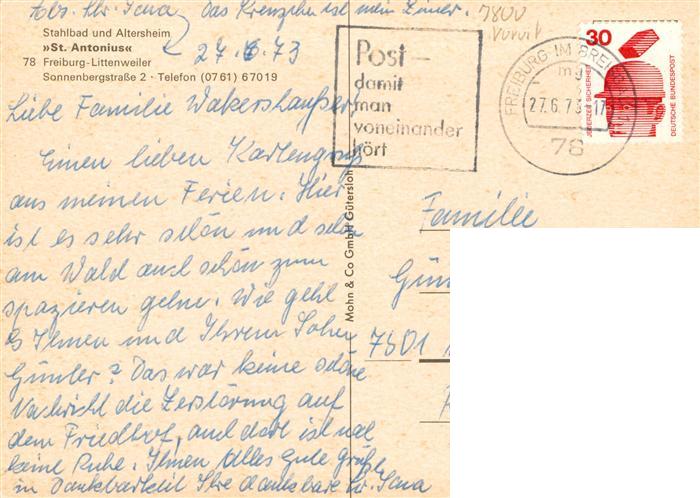 Abs. Schw. Sava Das Kreuzchen ist mein Zimmer.
Stahlbad und Altersheim
»St. Antonius«
78 Freiburg-Littenweiler
Sonnenbergstraße 2 · Telefon (0761) 67019
27.6.73
Liebe Familie
Einen lieben Kartengruß
aus meinen Ferien. Hier
ist es sehr schön und schön
am Wald auch schön zum
spazieren gehn. Wie geht
es Ihnen und Ihrem Sohn
Günter? Das war keine schöne
Nachricht die Zerstörung auf
dem Friedhof, auch dort ist mal
keine Ruhe. Ihnen Alles gute Grüße
in Dankbarkeit Ihre dankbare Sr. Sava
Mohn & Co GmbH Gütersloh
7800
Post –
damit
man
voneinander
hört
FREIBURG IM BREI
mg
27.6.73-17
78
30
JEDERZEIT SICHERHEIT
DEUTSCHE BUNDESPOST
Familie
Gün
7801